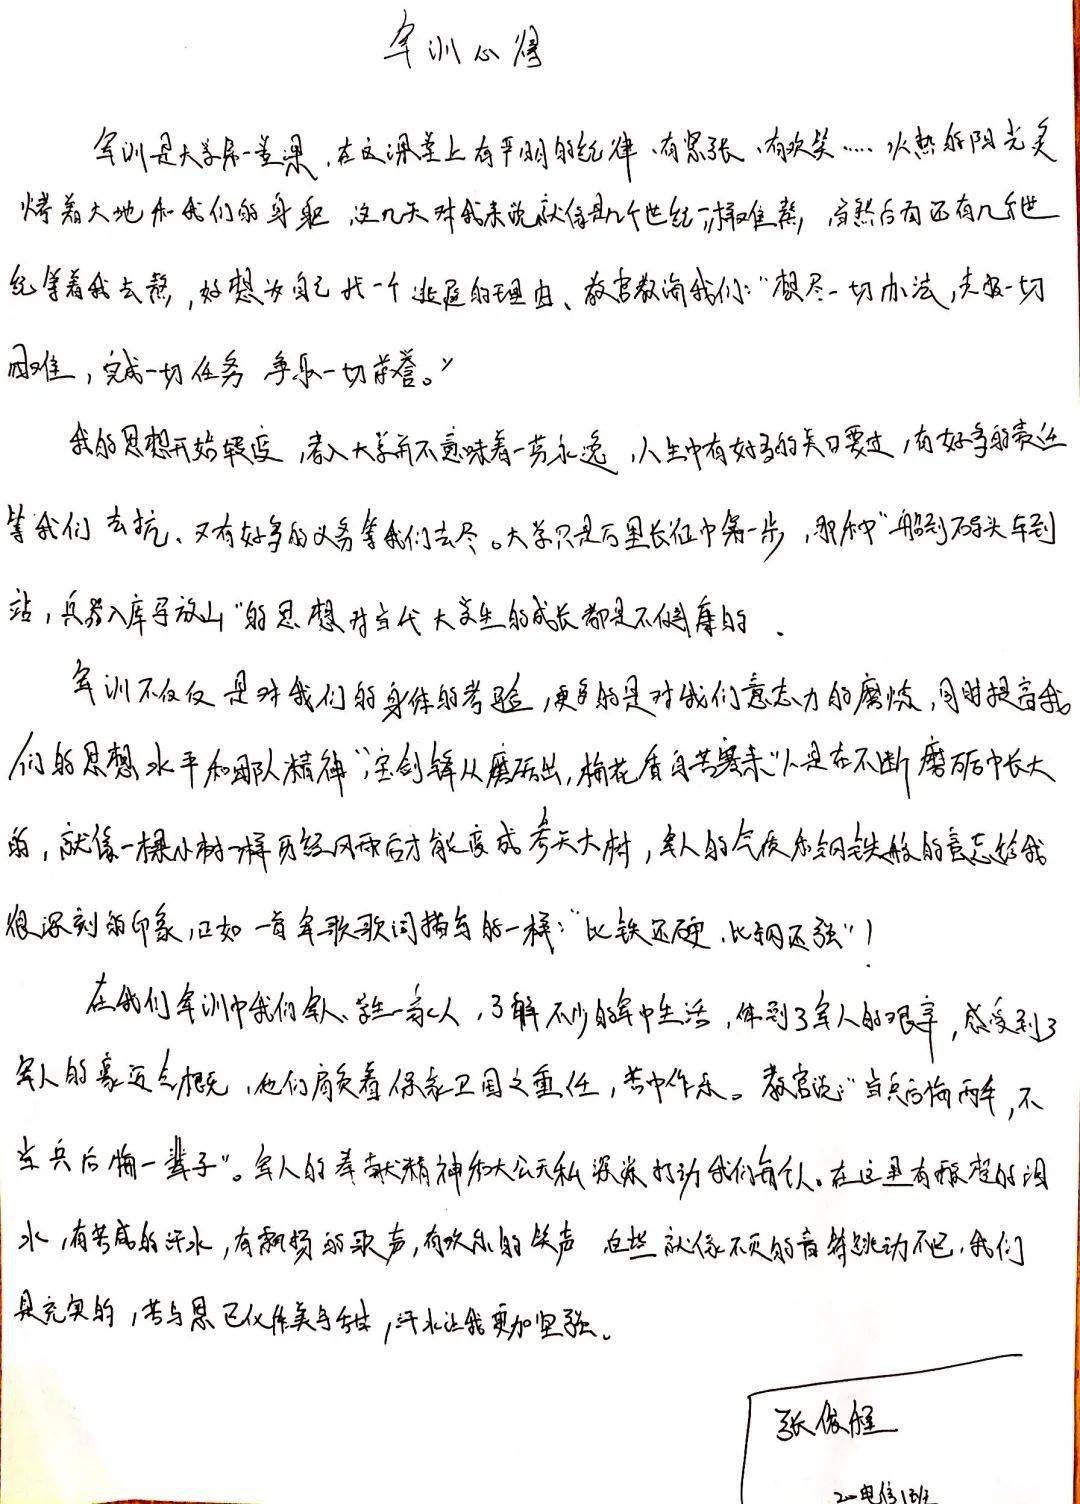 军训心得
军训是大学第一堂课,在这课堂上有严明的纪律、有紧张、有欢笑……火热的阳光炙
烤着大地和我们的身躯 这几天对我来说就像是几个世纪一样难熬,当然后面还有几个世
纪等着我去熬,好想为自己找一个逃避的理由、教官教诲我们:"想尽一切办法,克服一切
困难,完成一切任务 争取一切荣誉。"
我的思想开始转变,考入大学并不意味着一劳永逸,人生中有好多的关口要过,有好多的责任
等我们去扛、又有好多的义务等我们去尽。大学只是万里长征中第一步,那种"船到码头车到
站,兵器入库马放山"的思想对当代大学生的成长都是不健康的.
军训不仅仅是对我们的身体的考验,更多的是对我们意志力的磨炼,同时提高我
们的思想水平和团队精神"宝剑锋从磨砺出,梅花香自苦寒来"人是在不断磨砺中长大
的,就像一棵小树一样历经风雨后才能变成参天大树,军人的气质和钢铁般的意志给我
很深刻的印象,正如一首军歌歌词描写的一样:"比铁还硬,比钢还强"!
在我们军训中我们军人、学生一家人,了解不少的军中生活,体到了军人的艰辛,感受到了
军人的豪迈气概,他们肩负着保家卫国之重任,苦中作乐。教官说:"当兵后悔两年,不
当兵后悔一辈子"。军人的奉献精神和大公无私深深打动我们每个人。在这里有艰涩的泪
水,有苦咸的汗水,有飘扬的歌声,有欢乐的笑声 这些就像不灭的音符跳动不已.我们
是充实的,苦与累已化作美与甜,汗水让我更加坚强。
张俊
20电信1班